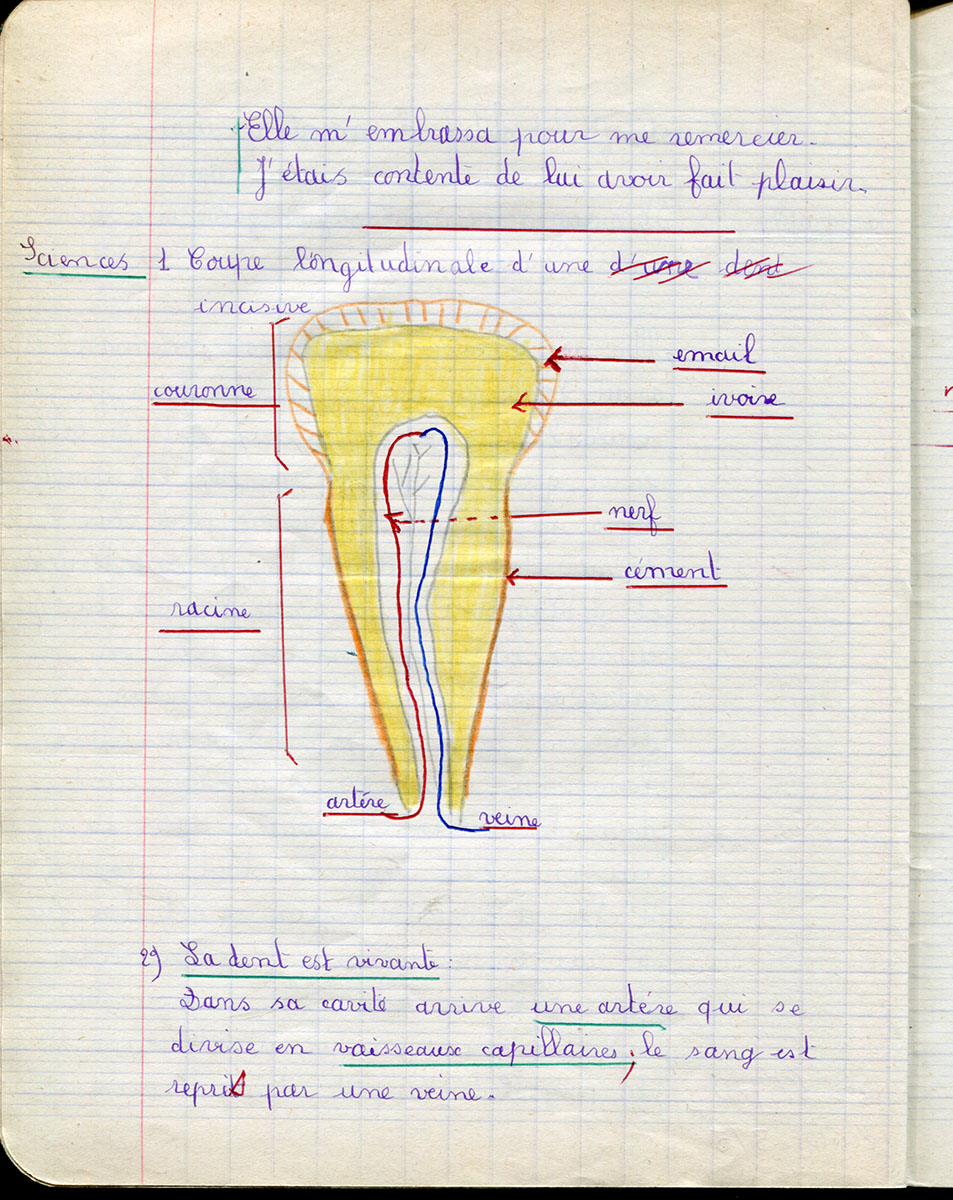 Elle m'embrassa pour me remercier.
J'étais contente de lui avoir fait plaisir.
Sciences 1 Coupe longitudinale d'une d'une dent
incisive
email
couronne
ivoire
nerf
cément
racine
artére
veine
2) La dent est vivante :
Dans sa cavité arrive une artére qui se
divise en vaisseaux capillaires ; le sang est
repris par une veine.